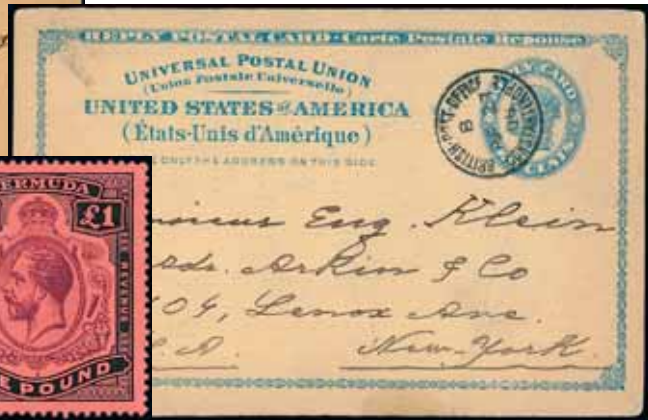 REPLY POSTAL CARD · Carte Postale Réponse
UNIVERSAL POSTAL UNION
(Union Postale Universelle)
UNITED STATES OF AMERICA
(États-Unis d'Amérique)
ONLY THE ADDRESS ON THIS SIDE
CARD
CENTS
BRITISH-POST-OFFICE
Eug. Klein
Arkin & Co
04, Lenox Ave.
New-York
BERMUDA
£1
REVENUE
POUND